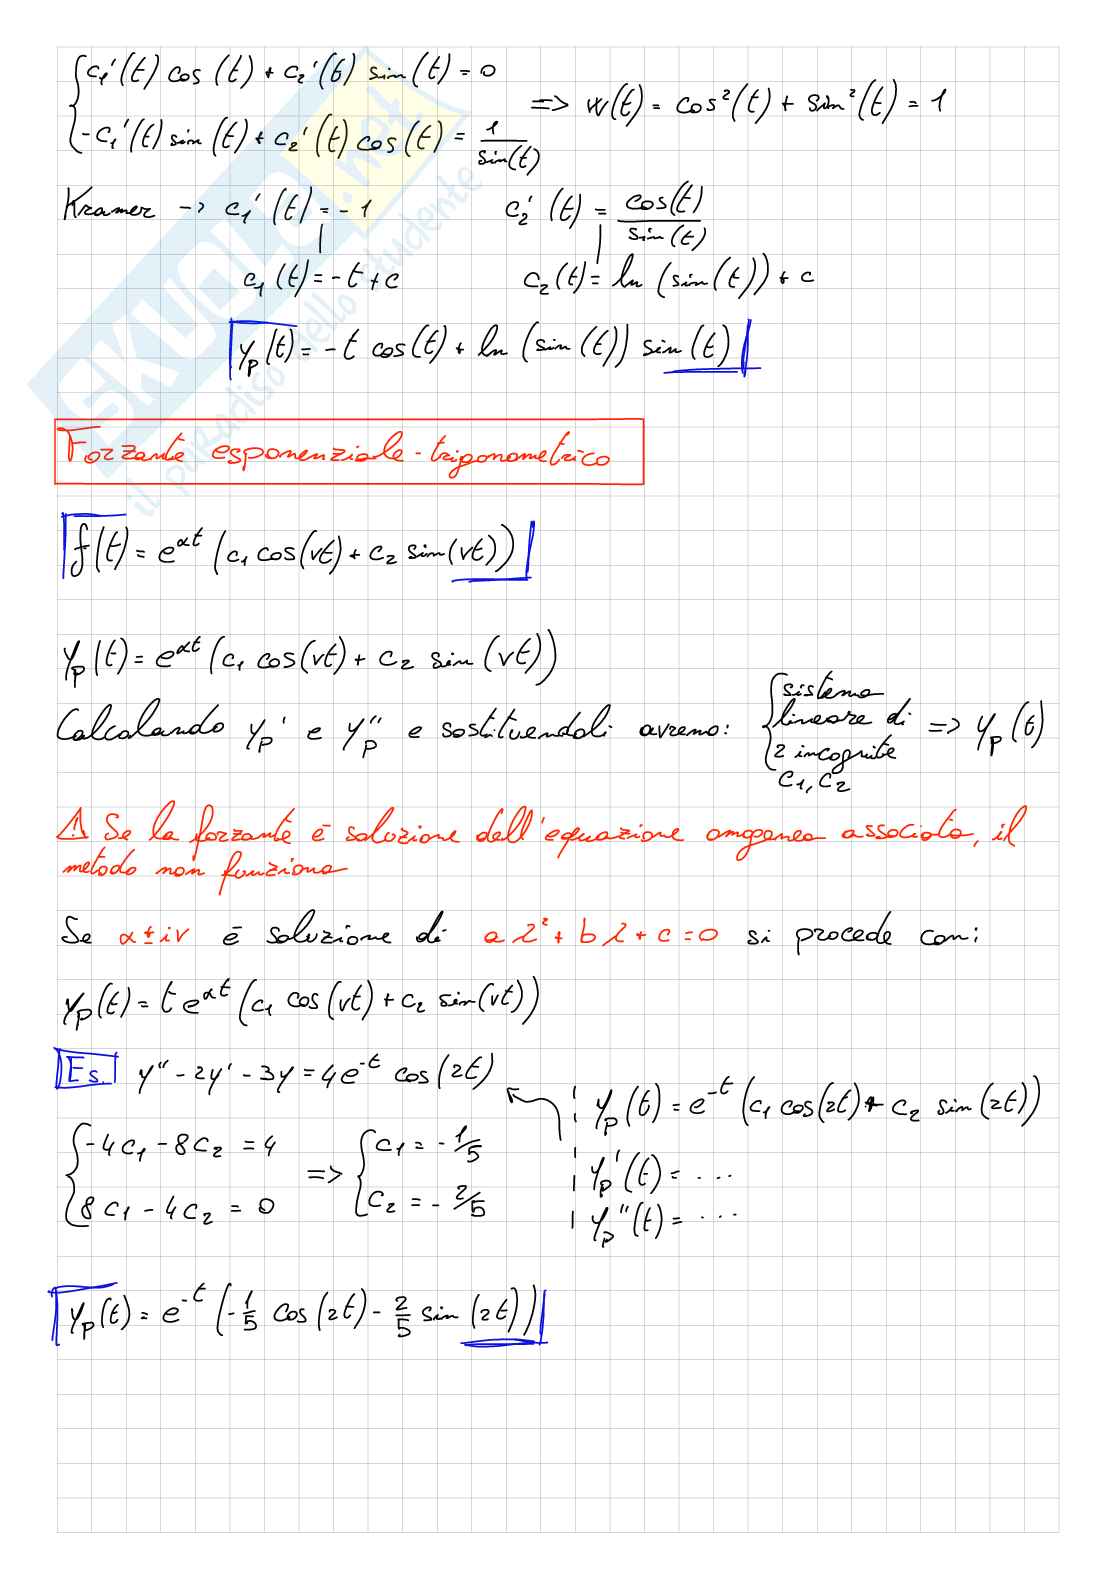 {c₁'(t) cos(t) + c₂'(t) sin(t) = 0
-c₁'(t) sin(t) + c₂'(t) cos(t) = 1/sin(t)
=> W(t) = cos²(t) + sin²(t) = 1
Kramer -> c₁'(t) = -1 c₂'(t) = cos(t)/sin(t)
c₁(t) = -t + c c₂(t) = ln(sin(t)) + c
yp(t) = -t cos(t) + ln(sin(t)) sin(t)
Forzante esponenziale-trigonometrico
f(t) = e^αt (c₁ cos(vt) + c₂ sin(vt))
yp(t) = e^αt (c₁ cos(vt) + c₂ sin(vt))
Calcolando yp' e yp'' e sostituendoli avremo:
{sistema
lineare di
2 incognite
c₁, c₂
=> yp(t)
⚠ Se la forzante è soluzione dell'equazione omogenea associata, il
metodo non funziona
Se α±iv è soluzione di aλ² + bλ + c = 0 si procede con:
yp(t) = t e^αt (c₁ cos(vt) + c₂ sin(vt))
Es. y'' - 2y' - 3y = 4e^-t cos(2t)
yp(t) = e^-t (c₁ cos(2t) + c₂ sin(2t))
yp'(t) = ...
yp''(t) = ...
{-4c₁ - 8c₂ = 4 => {c₁ = -1/5
8c₁ - 4c₂ = 0 c₂ = -2/5
yp(t) = e^-t (-1/5 cos(2t) - 2/5 sin(2t))
SKUOLA.net
il paradiso dello studente